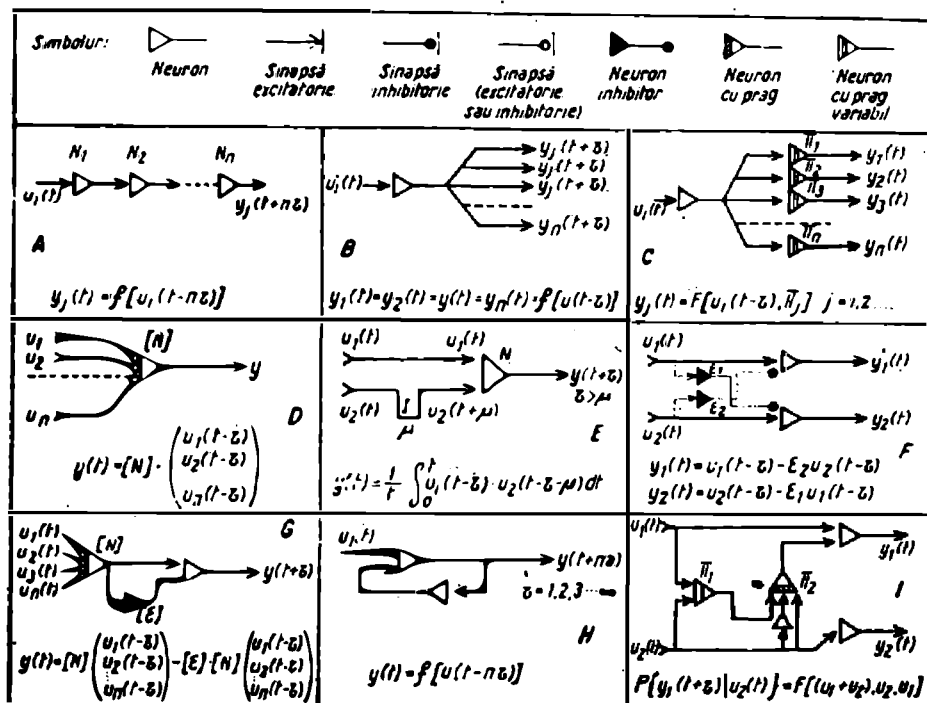 Simboluri:
Neuron
Sinapsă excitatorie
Sinapsă inhibitorie
Sinapsă (excitatorie sau inhibitorie)
Neuron inhibitor
Neuron cu prag
Neuron cu prag variabil
N₁ N₂ Nₙ
u₁(t) yⱼ(t+nꞆ)
A
yⱼ(t)=f[u₁(t-nꞆ)]
yⱼ(t+Ꞇ)
yⱼ(t+Ꞇ)
yⱼ(t+Ꞇ)
yₙ(t+Ꞇ)
B
y₁(t)=y₂(t)=y(t)=yₙ(t)=f[u(t-Ꞇ)]
π̄₁ y₁(t)
y₂(t)
π̄₃ y₃(t)
u₁(t)
π̄ₙ yₙ(t)
C
yⱼ(t)=F[u₁(t-Ꞇ),π̄ⱼ] j=1,2....
u₁ [N]
u₂ y
uₙ
D
y(t)=[N]·(u₁(t-Ꞇ)
u₂(t-Ꞇ)
uₙ(t-Ꞇ))
u₁(t) u₁(t) N
y(t+Ꞇ)
Ꞇ>μ
u₂(t) μ u₂(t+μ)
E
(t)=1/t ∫₀ᵗ u₁(t-Ꞇ)·u₂(t-Ꞇ-μ)dt
u₁(t) y₁(t)
ε₁
ε₂
u₂(t) y₂(t)
F
y₁(t)=u₁(t-Ꞇ)-ε₂u₂(t-Ꞇ)
y₂(t)=u₂(t-Ꞇ)-ε₁u₁(t-Ꞇ)
G
u₁(t) [N]
u₂(t)
u₃(t) y(t+Ꞇ)
uₙ(t)
[ε]
y(t)=[N](u₁(t-Ꞇ)
u₂(t-Ꞇ)
uₙ(t-Ꞇ))-[ε]·[N](u₁(t-Ꞇ)
u₂(t-Ꞇ)
uₙ(t-Ꞇ))
y(t+na)
Ꞇ=1,2,3···∞
H
y(t)=f[u(t-nꞆ)]
u₁(t) y₁(t)
π̄₁ π̄₂
I
u₂(t) y₂(t)
P{y₁(t+Ꞇ)|u₂(t)}=F[(u₁+u₂),u₂,u₁]